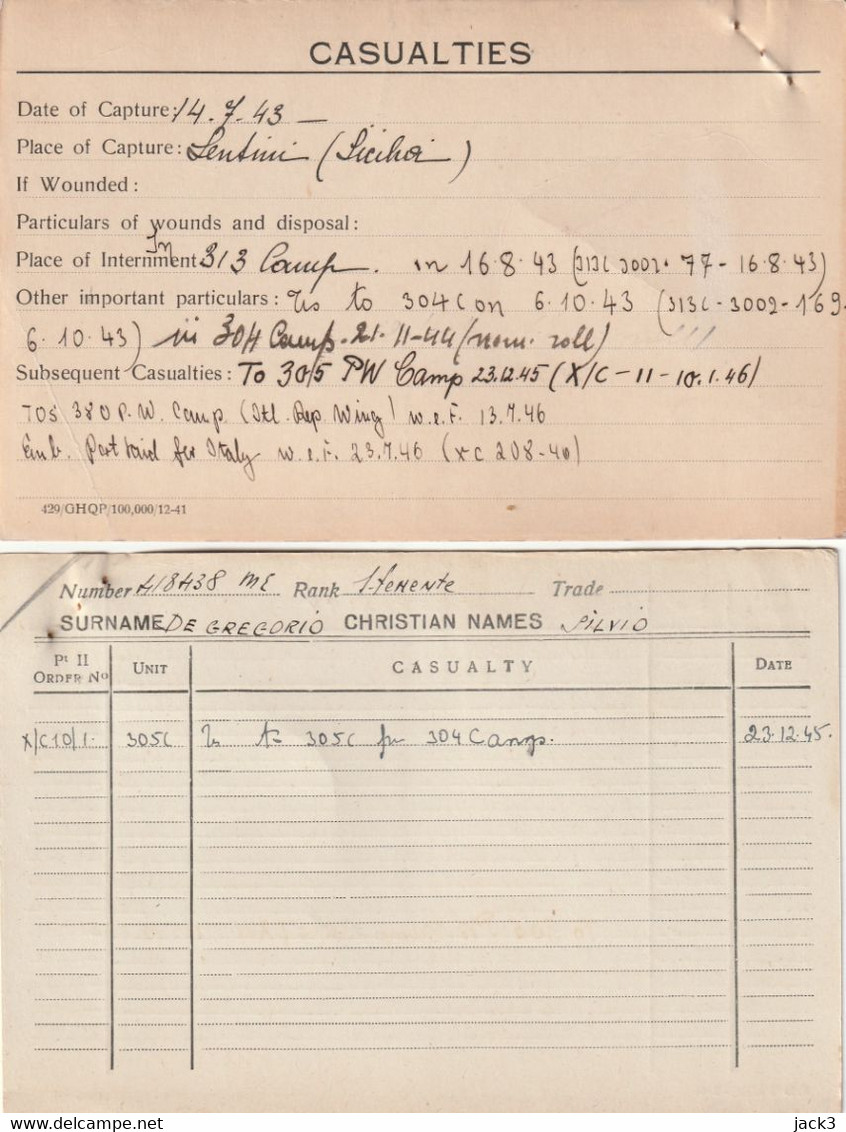 CASUALTIES
Date of Capture: 14.7.43 —
Place of Capture: Lentini (Sicilia)
If Wounded:
Particulars of wounds and disposal:
In
Place of Internment 313 Camp. in 16.8.43 (313C 3002. 77-16.8.43)
Other important particulars: to 304C on 6.10.43 (313C-3002-169.
6.10.43) in 304 Camp. 21.11-44 (nom. roll)
Subsequent Casualties: To 305 PW Camp 23.12.45 (X/C-11-10.1.46)
TOS 380 P.W. Camp (Itl. Rep Wing) w.e.f. 13.7.46
Emb. Port Said for Italy w.e.f. 23.7.46 (XC 208-40)
429/GHQP/100,000/12-41
Number 418438 ME Rank S.Tenente Trade
SURNAME DE GREGORIO CHRISTIAN NAMES SILVIO
Pt II ORDER No UNIT CASUALTY DATE
X/C10/1. 305C to 305C fm 304 Camp. 23.12.45.
jack3